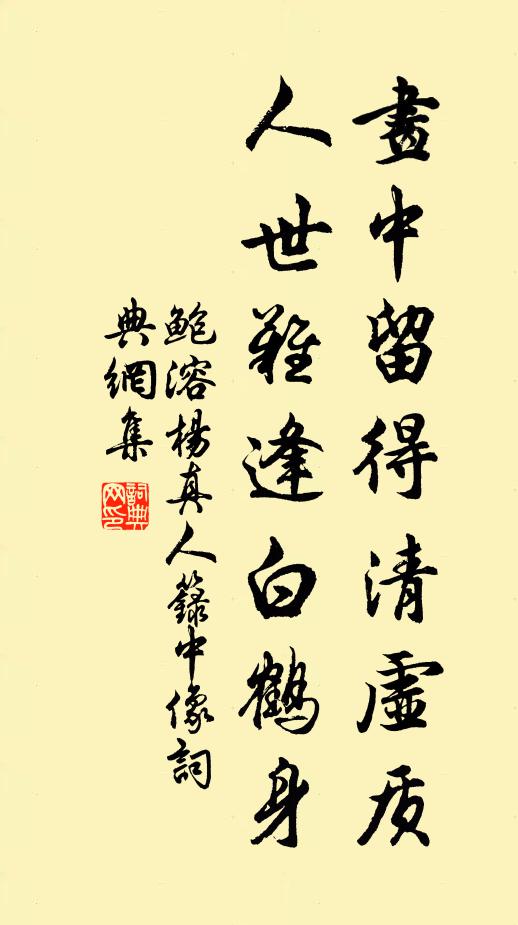 畫中留得清虛质
人世難逢白鶴身
鮑溶楊真人籙中像詞
典網集
詞典网印